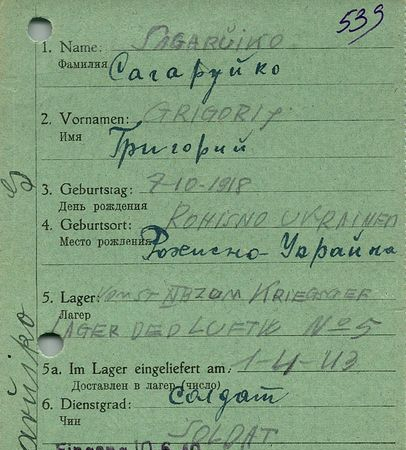 539
1. Name: SAGARUIKO
Фамилия Сагаруйко
2. Vornamen: GRIGORIJ
Имя Григорий
3. Geburtstag: 7-10-1918
День рождения
4. Geburtsort: ROHISNO UKRAINEN
Место рождения Рожисно-Украйна
5. Lager: KRIEGSGEF
Лагер
LAGER DED LUFTW No 5
5a. Im Lager eingeliefert am: 1-4-43
Доставлен в лагер (число)
6. Dienstgrad: Солдат
Чин
SOLDAT
Eingang